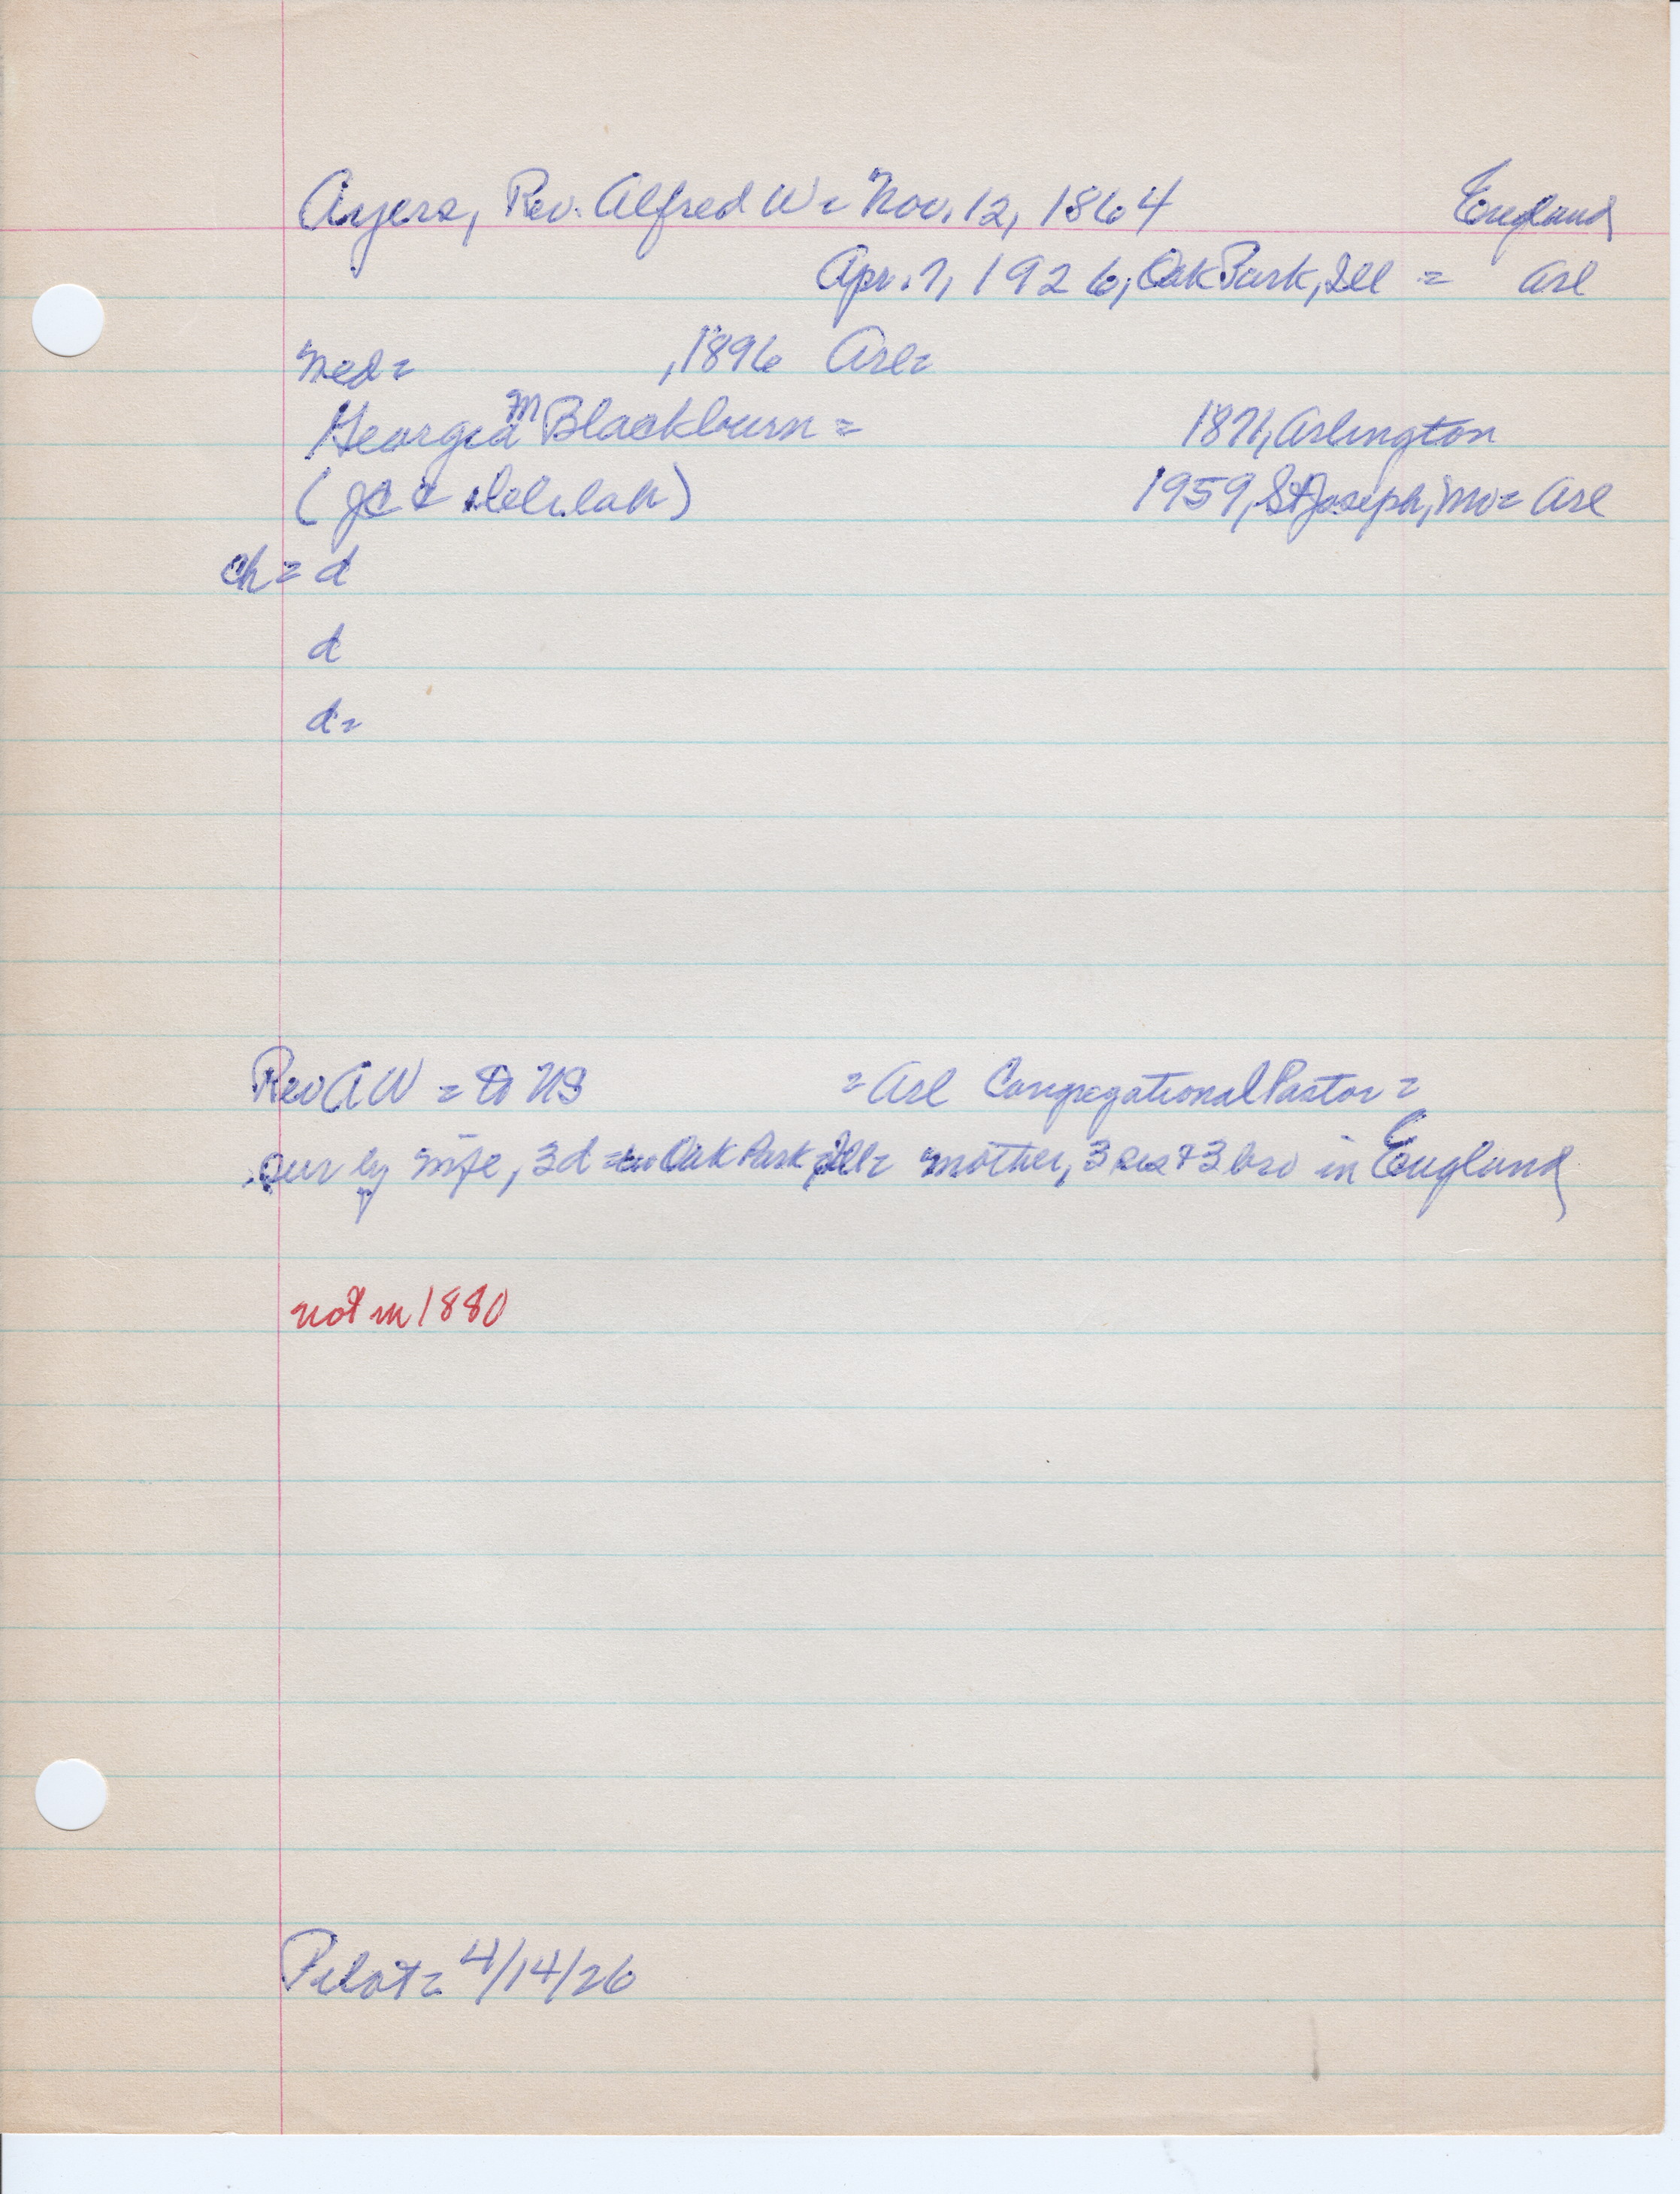 Ayers, Rev. Alfred W = Nov. 12, 1864 England
Apr. 7, 1926, Oak Park, Ill = Arl
med = , 1896 Arl =
Georgia M Blackburn = 1871, Arlington
(JC & Delilah) 1959, St Joseph, Mo = Arl
ch = d
d
d =
Rev AW = to US = Arl Congregational Pastor =
sur by wife, 3d = Oak Park Ill = mother, 3 sis + 3 bro in England
not in 1880
Pilot = 4/14/26